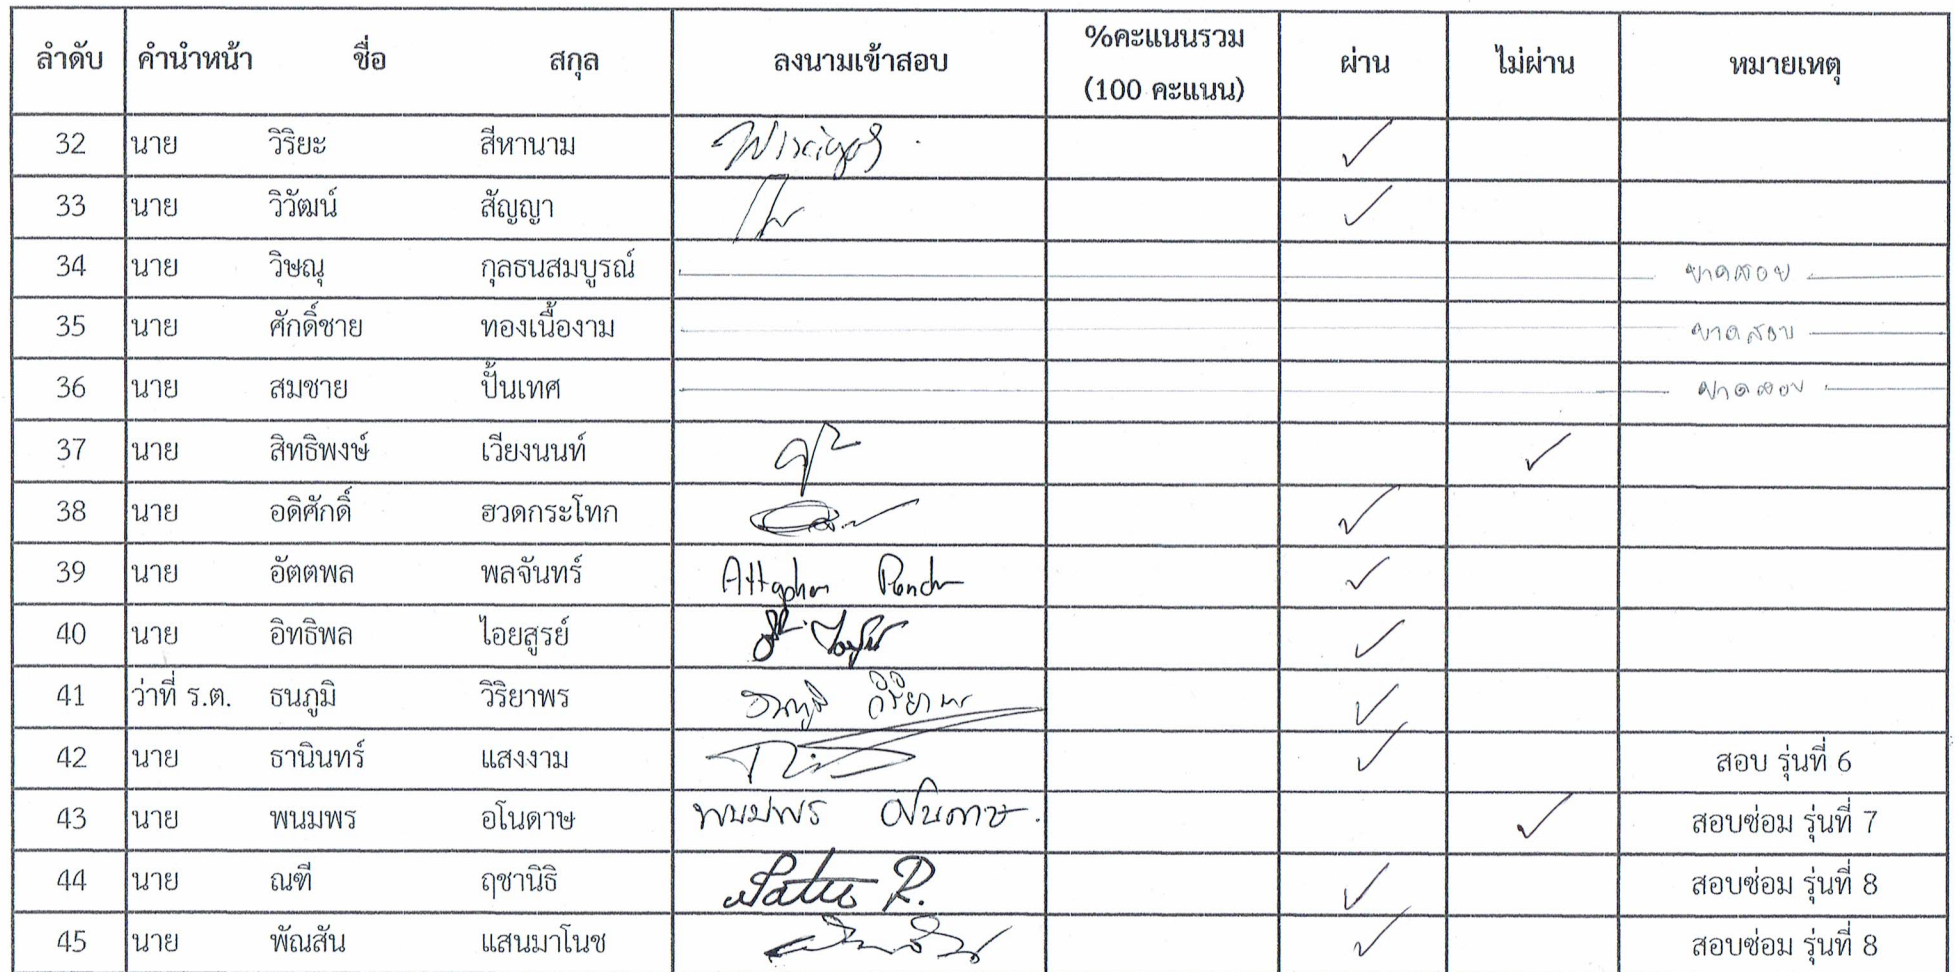 ลำดับ คำนำหน้า ชื่อ สกุล ลงนามเข้าสอบ %คะแนนรวม (100 คะแนน) ผ่าน ไม่ผ่าน หมายเหตุ
32 นาย วิริยะ สีหานาม ✓
33 นาย วิวัฒน์ สัญญา ✓
34 นาย วิษณุ กุลธนสมบูรณ์ ขาดสอบ
35 นาย ศักดิ์ชาย ทองเนื้องาม ขาดสอบ
36 นาย สมชาย ปั้นเทศ ขาดสอบ
37 นาย สิทธิพงษ์ เวียงนนท์ ✓
38 นาย อดิศักดิ์ ฮวดกระโทก ✓
39 นาย อัตตพล พลจันทร์ ✓
40 นาย อิทธิพล ไอยสูรย์ ✓
41 ว่าที่ ร.ต. ธนภูมิ วิริยาพร ธนภูมิ วิริยาพร ✓
42 นาย ธานินทร์ แสงงาม ✓ สอบ รุ่นที่ 6
43 นาย พนมพร อโนดาษ พนมพร อโนดาษ ✓ สอบซ่อม รุ่นที่ 7
44 นาย ณฑี ฤชานิธิ ✓ สอบซ่อม รุ่นที่ 8
45 นาย พัณสัน แสนมาโนช ✓ สอบซ่อม รุ่นที่ 8